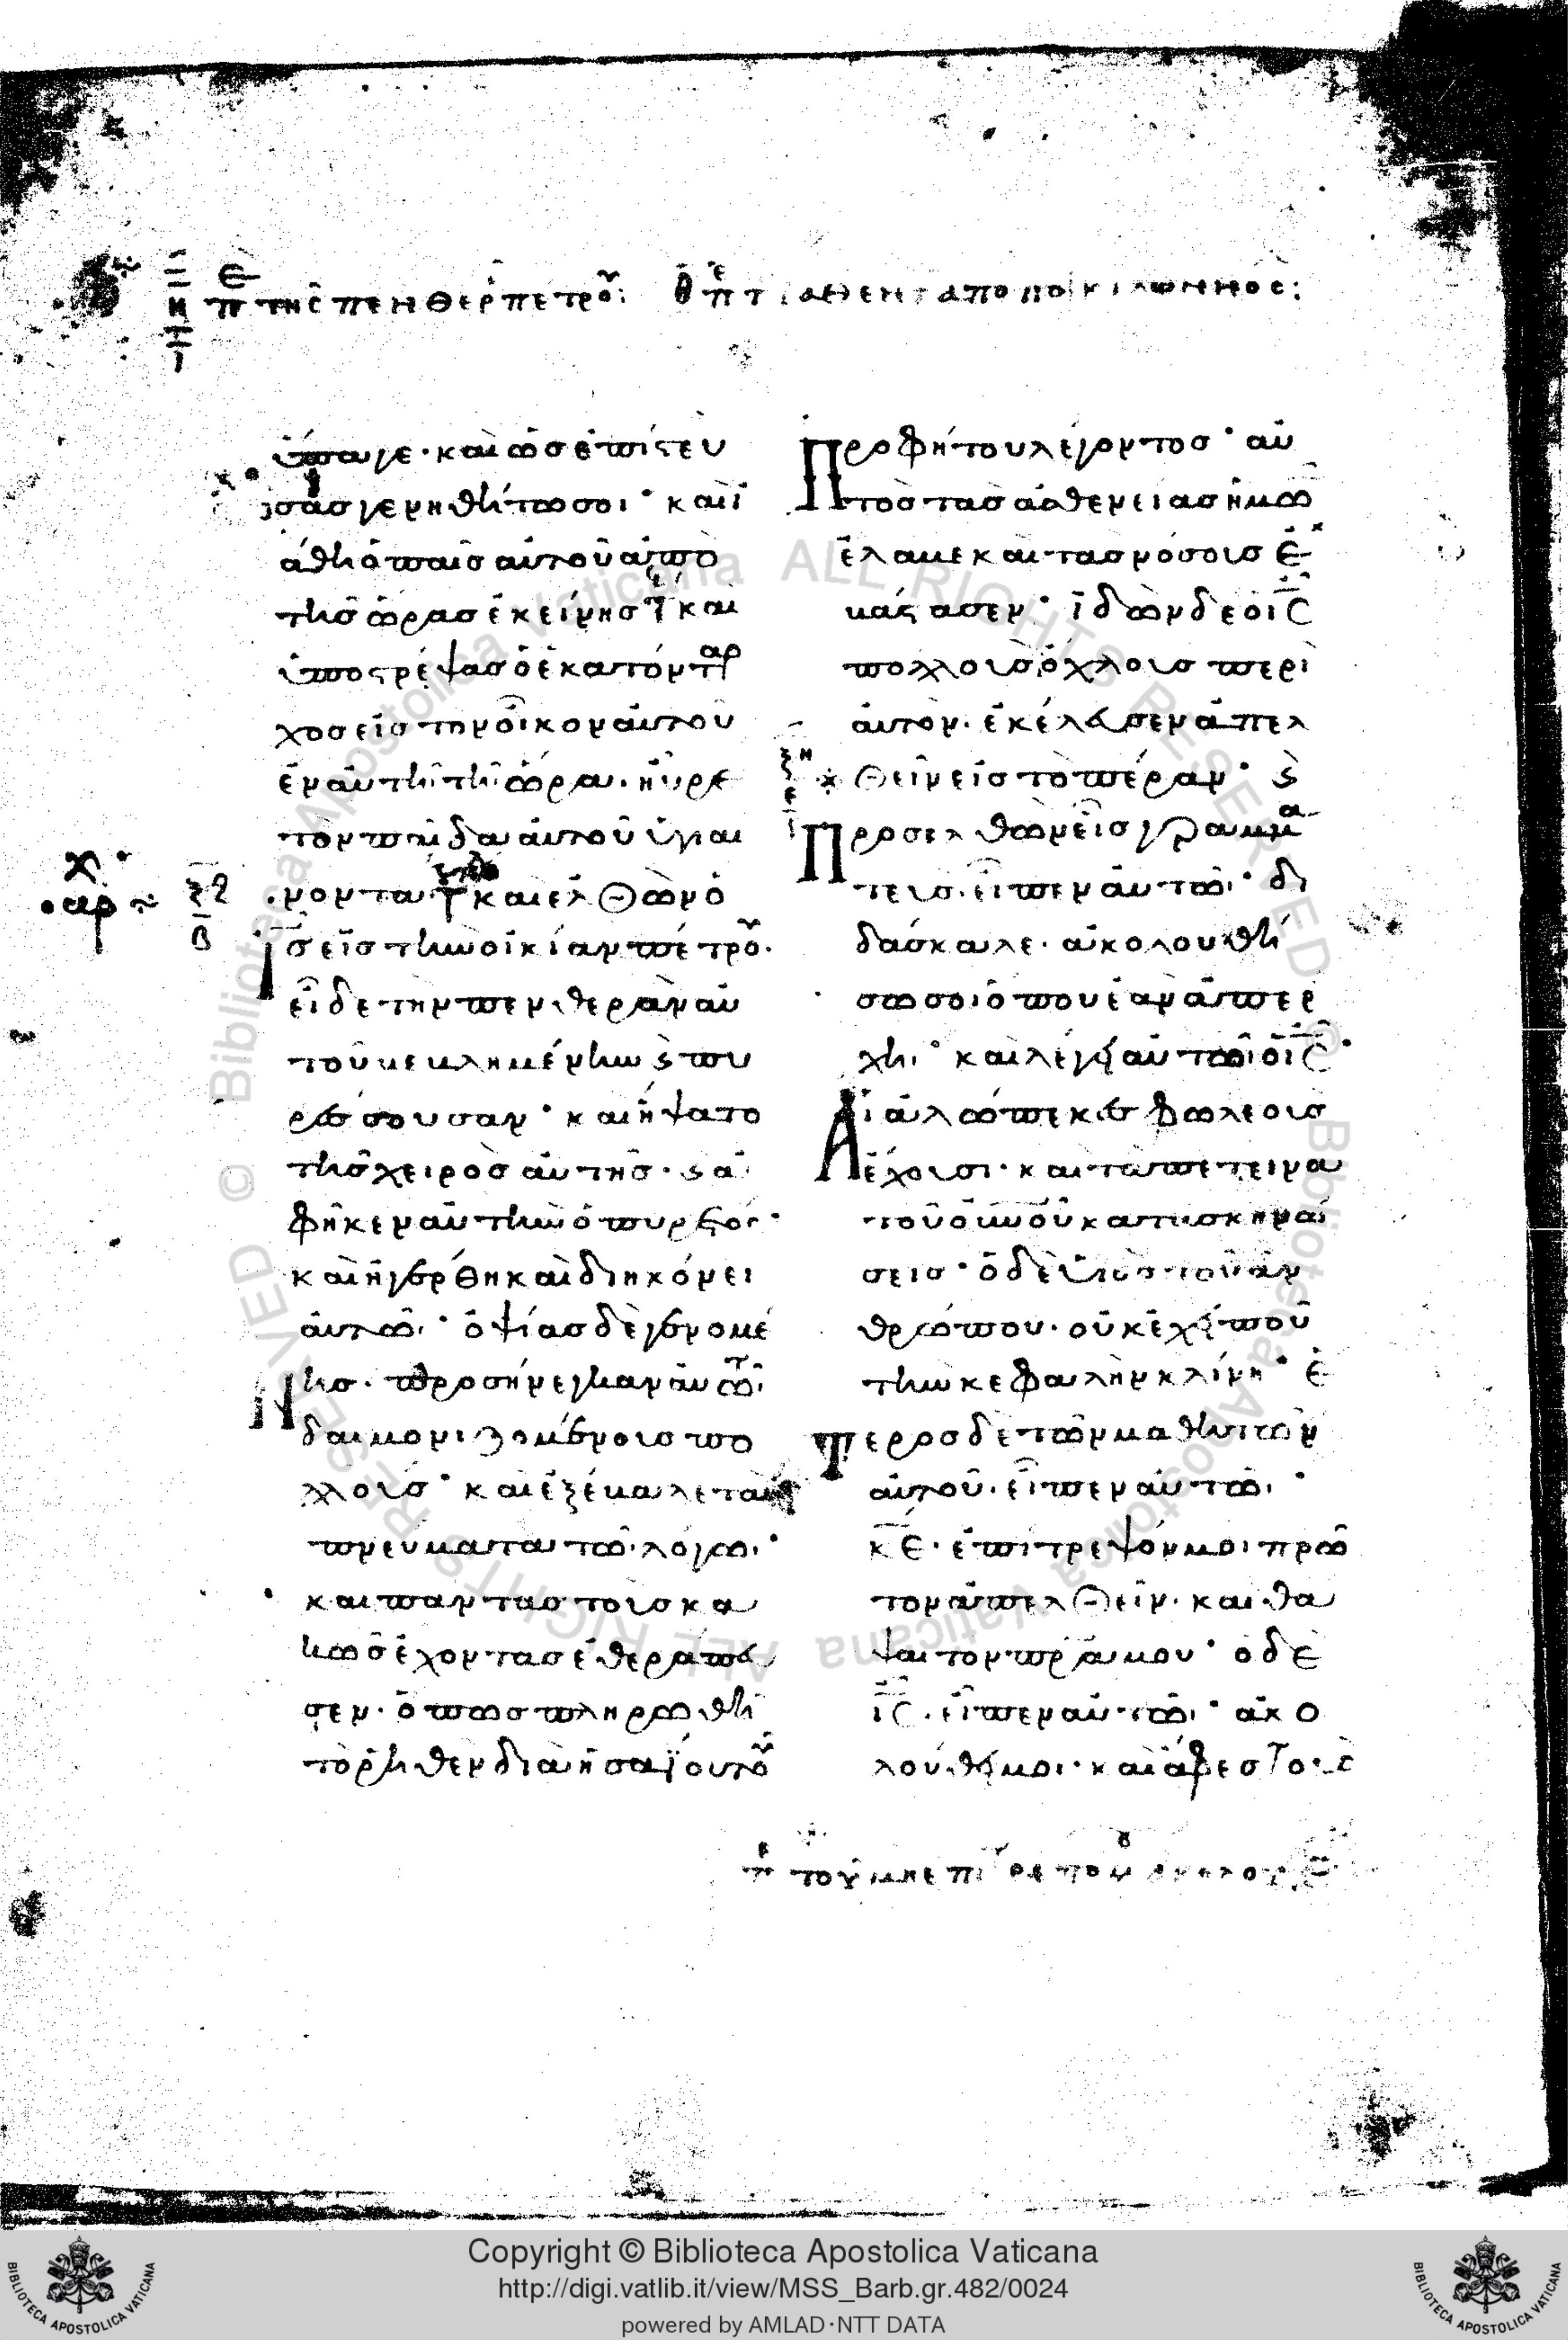 η π τῆς πενθερ πετρου: θ π τ ιαθεντ απο ποικιλων νος:
ὕπαγε· καὶ ὡς ἐπίστευ
σας γενηθήτω σοι· καὶ ἰ
άθη ὁ παῖς αὐτοῦ ἀπὸ
τῆς ὥρας ἐκείνης καὶ
ὑποστρέψας ὁ ἑκατόνταρ
χος εἰς τὴν οἶκον αὐτοῦ
ἐν αὐτῇ τῇ ὥρα· ηὗρε
τὸν παῖδα αὐτοῦ ὑγιαί
νοντα καὶ ἐλθὼν ὁ
ξζ
β
ις εἰς τὴν οἰκίαν πέτρου·
εἶδε τὴν πενθερὰν αὐ
τοῦ βεβλημένην ϗ πυ
ρέσσουσαν· καὶ ἥψατο
τῆς χειρὸς αὐτῆς· ϗ ἀ
φῆκεν αὐτὴν ὁ πυρετός·
καὶ ἠγέρθη καὶ διηκόνει
αὐτῶ· ὀψίας δὲ γενομέ
νης· προσήνεγκαν αὐτῶ
δαιμονιζομένους πο
λλούς· καὶ ἐξέβαλε τὰ
πνεύματα τῶ λόγω·
καὶ πάντας τοὺς κα
κῶς ἔχοντας ἐθεράπευ
σεν· ὅπως πληρωθῆ
τὸ ῥηθὲν διὰ ἡσαΐου τοῦ
προφήτου λέγοντος· αὐ
τὸς τὰς ἀσθενείας ἡμῶ
ἔλαβε καὶ τὰς νόσους ἐ
βάστασεν· ἰδὼν δὲ ὁ ις
πολλοὺς ὄχλους περὶ
αὐτὸν· ἐκέλευσεν ἀπελ
ξη
ε
θεῖν εἰς τὸ πέραν· ϗ
προσελθὼν εἷς γραμμα
τεὺς· εἶπεν αὐτῶ· δι
δάσκαλε· ἀκολουθή
σω σοι ὅπου ἐὰν ἀπέρ
χη· καὶ λέγει αὐτῶ ὁ ις·
Αἱ ἀλώπεκες φωλεοὺς
ἔχουσι· καὶ τὰ πετεινὰ
τοῦ οὐνοῦ κατασκηνώ
σεις· ὁ δὲ υἱὸς τοῦ ἀν
θρώπου· οὐκ ἔχει ποῦ
τὴν κεφαλὴν κλίνη· ἕ
τερος δὲ τῶν μαθητῶν
αὐτοῦ· εἶπεν αὐτῶ·
κε· ἐπίτρεψόν μοι πρῶ
τον ἀπελθεῖν· καὶ θά
ψαι τὸν πρα μου· ὁ δὲ
ις· εἶπεν αὐτῶ· ἀκο
λούθει μοι· καὶ ἄφες το
π τοῦ μη επι
Copyright © Biblioteca Apostolica Vaticana
http://digi.vatlib.it/view/MSS_Barb.gr.482/0024
powered by AMLAD·NTT DATA